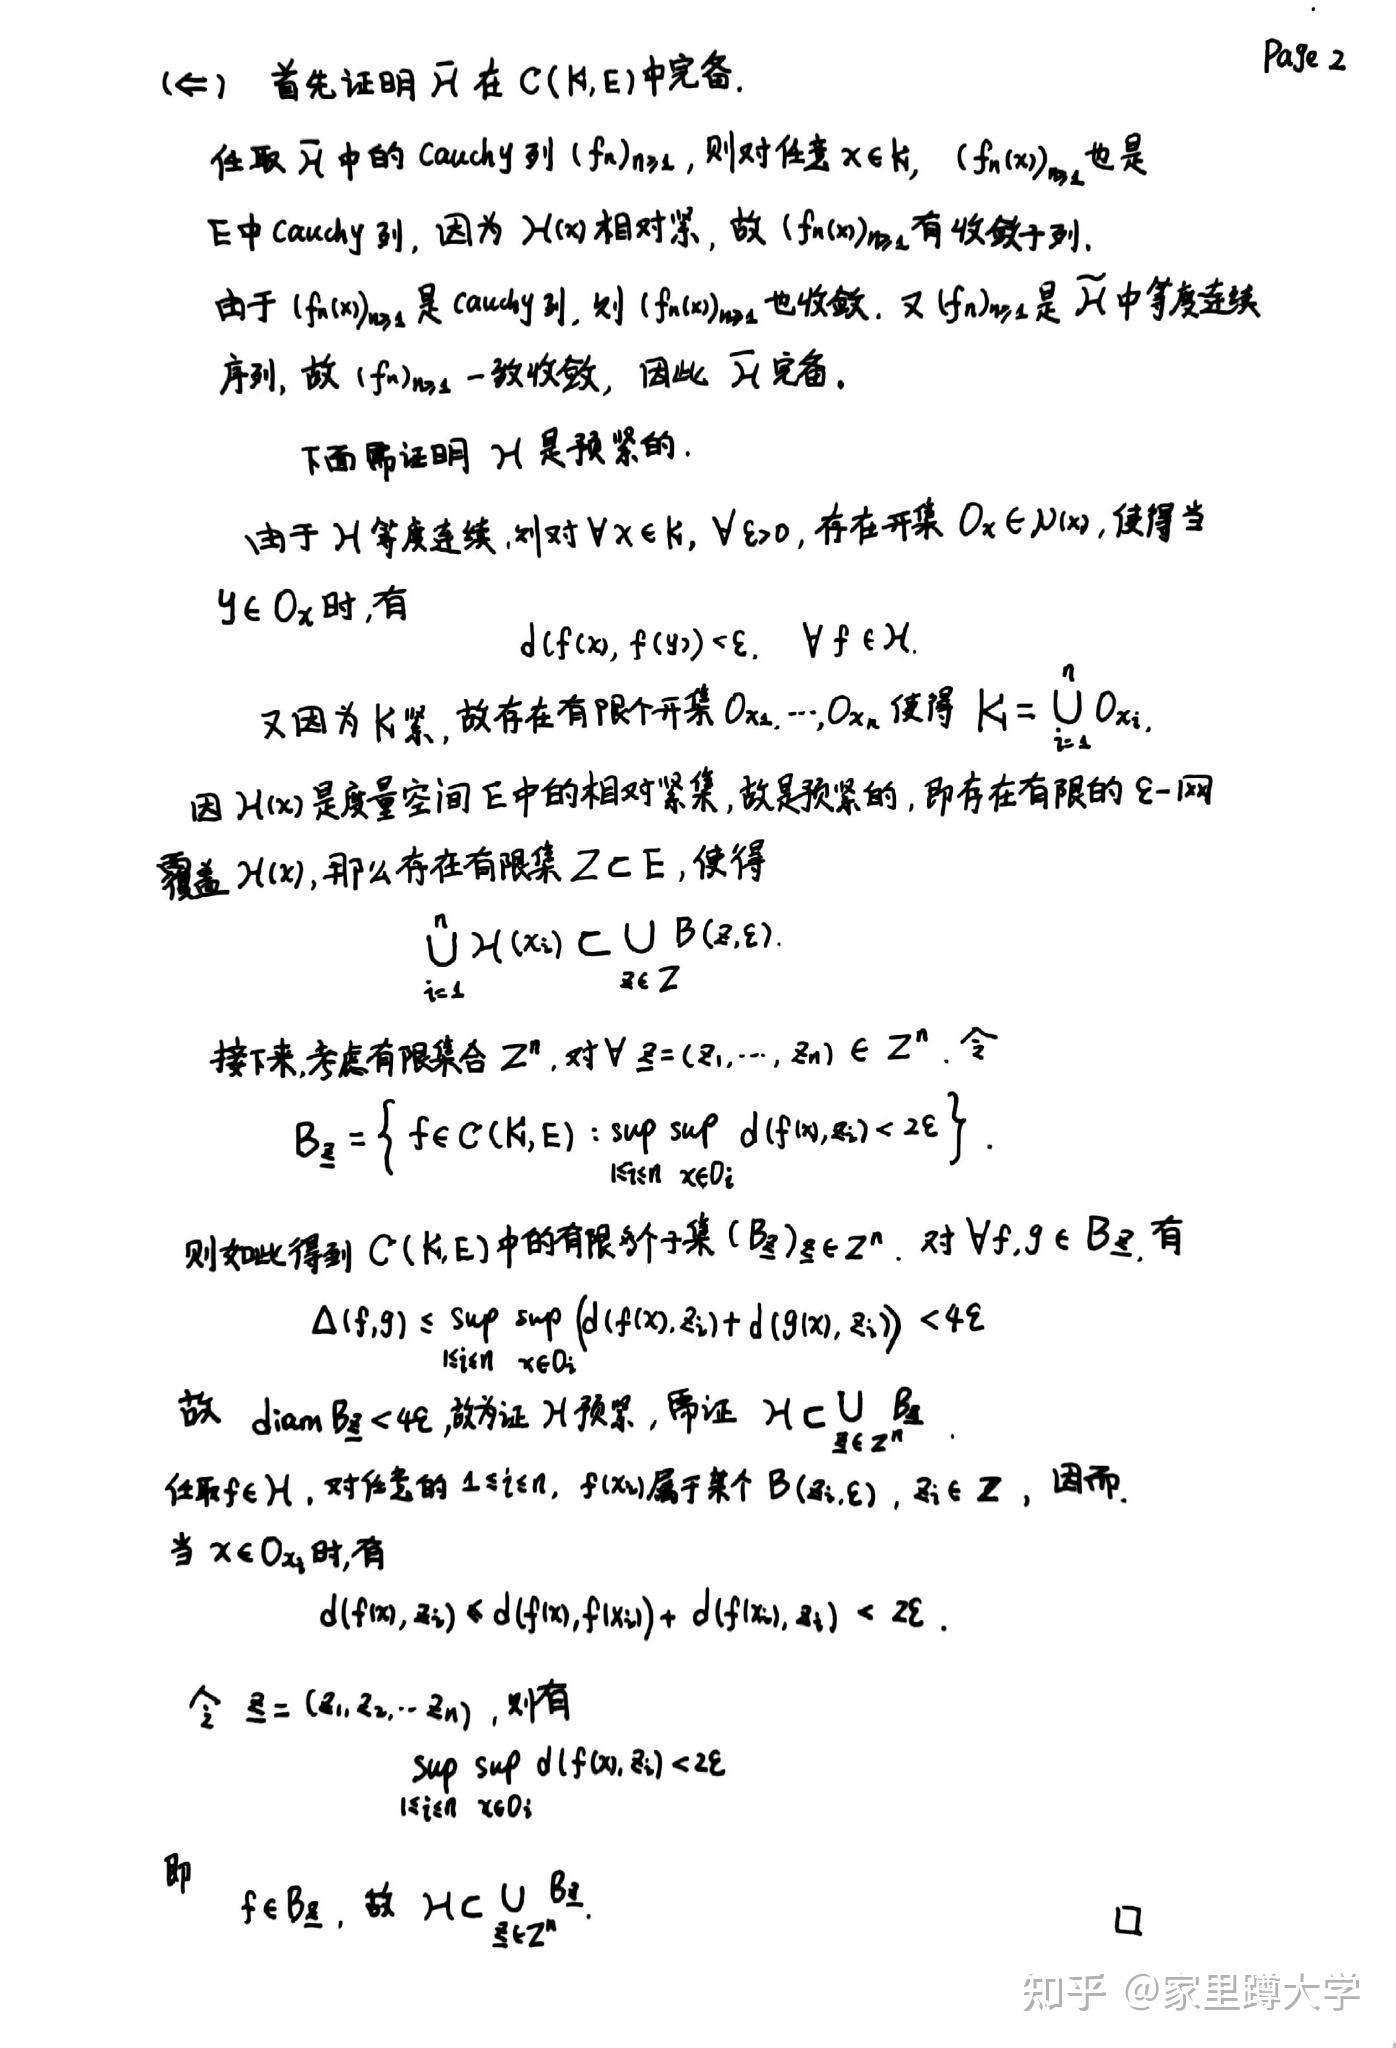 Page 2
(⇐) 首先证明 H̄ 在 C(K,E)中完备.
任取 H̄ 中的 Cauchy 列 (fn)n≥1, 则对任意 x∈K, (fn(x))n≥1 也是
E中 Cauchy 列, 因为 H(x) 相对紧, 故 (fn(x))n≥1 有收敛子列.
由于 (fn(x))n≥1 是 Cauchy 列, 则 (fn(x))n≥1 也收敛. 又 (fn)n≥1 是 H̃ 中等度连续
序列, 故 (fn)n≥1 一致收敛, 因此 H̄ 完备.
下面需证明 H 是预紧的.
由于 H 等度连续, 则对 ∀x∈K, ∀ε>0, 存在开集 Ox∈N(x), 使得当
y∈Ox 时, 有
d(f(x), f(y))<ε. ∀f∈H.
又因为 K 紧, 故存在有限个开集 Ox₁, ⋯, Oxn 使得 K = ⋃ⁿᵢ₌₁ Oxᵢ.
因 H(x) 是度量空间 E 中的相对紧集, 故是预紧的, 即存在有限的 ε-网
覆盖 H(x), 那么存在有限集 Z⊂E, 使得
⋃ⁿᵢ₌₁ H(xᵢ) ⊂ ⋃z∈Z B(z,ε).
接下来, 考虑有限集合 Zⁿ, 对∀ z̲=(z₁,⋯, zn) ∈ Zⁿ. 令
Bz̲ = { f∈C(K,E) : sup1≤i≤n supx∈Oi d(f(x),zᵢ)<2ε } .
则如此得到 C(K,E) 中的有限多个子集 (Bz̲)z̲∈Zⁿ. 对 ∀f,g∈Bz̲, 有
Δ(f,g) ≤ sup1≤i≤n supx∈Oi (d(f(x),zᵢ)+d(g(x),zᵢ)) <4ε
故 diam Bz̲<4ε, 故为证 H 预紧, 需证 H⊂⋃z̲∈Zⁿ Bz̲ .
任取f∈H, 对任意的 1≤i≤n, f(xᵢ)属于某个 B(zᵢ,ε), zᵢ∈Z, 因而.
当 x∈Oxᵢ 时, 有
d(f(x),zᵢ) ≤ d(f(x),f(xᵢ)) + d(f(xᵢ),zᵢ) < 2ε.
令 z̲=(z₁,z₂,⋯zn), 则有
sup1≤i≤n supx∈Oi d(f(x),zᵢ)<2ε
即
f∈Bz̲, 故 H⊂⋃z̲∈Zⁿ Bz̲. □
知乎 @家里蹲大学